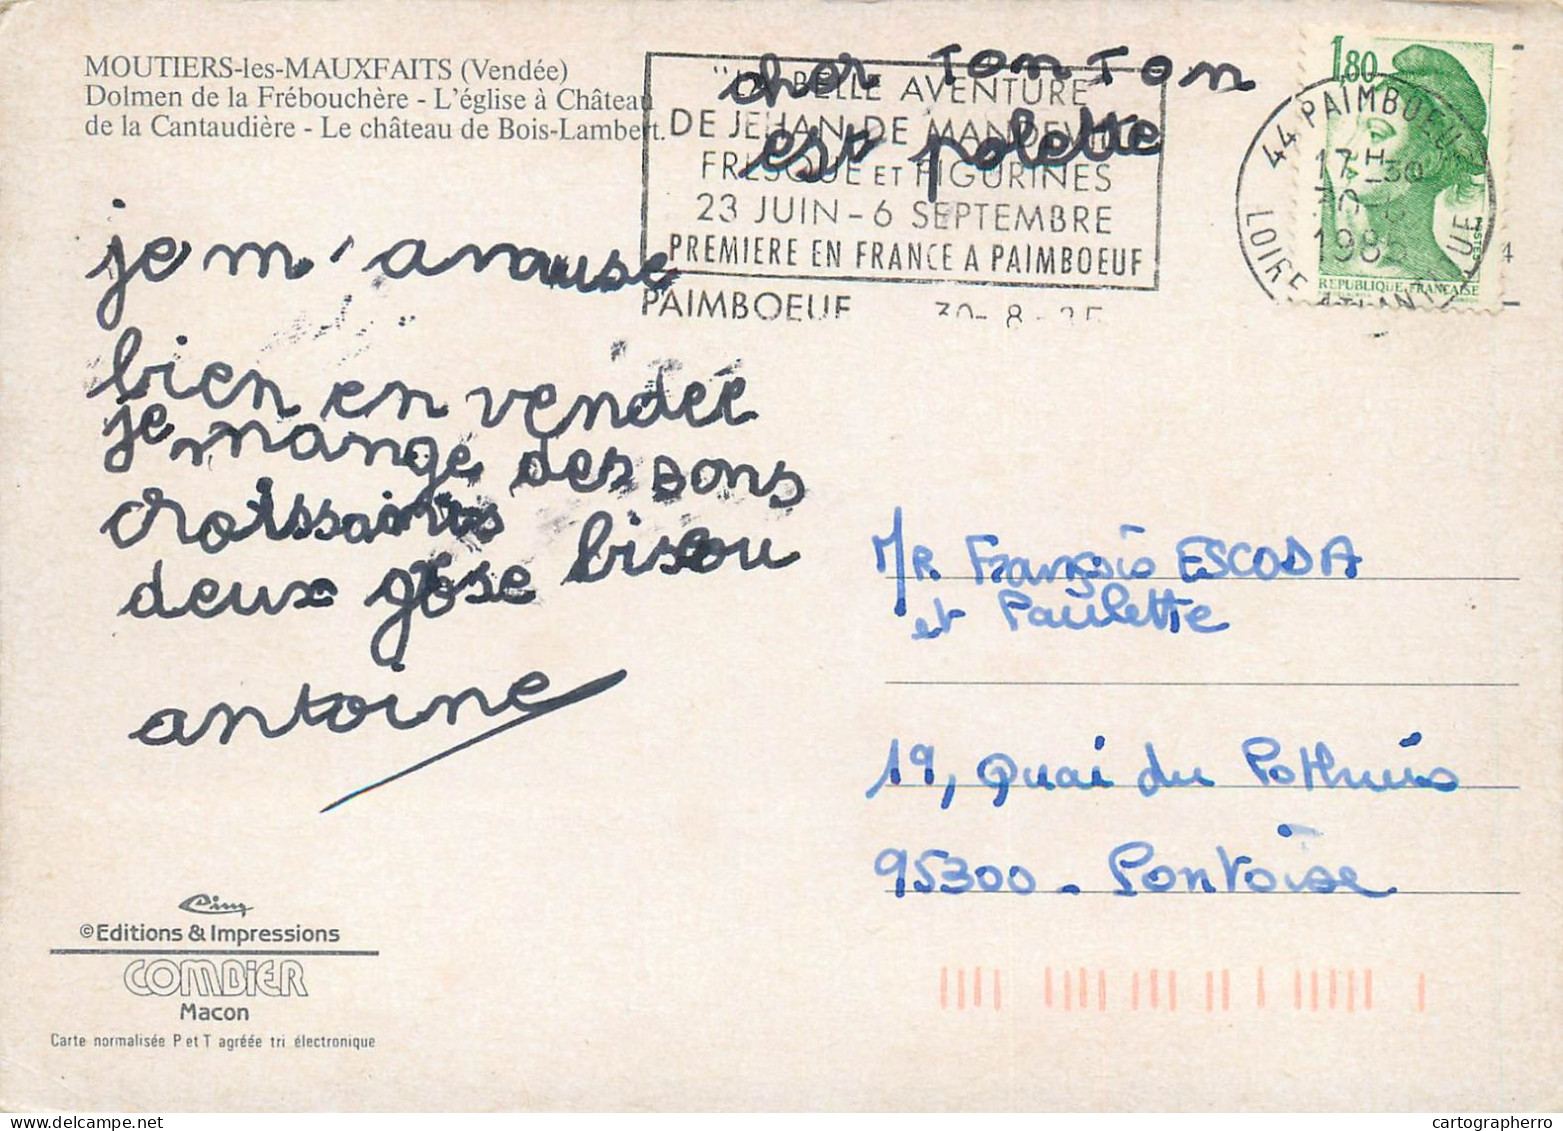 MOUTIERS-les-MAUXFAITS (Vendée)
Dolmen de la Frébouchère - L'église à Château
de la Cantaudière - Le château de Bois-Lambert.
cher TonTon
est polette
je m'amuse
bien en vendée
je mange des bons
croissants
deux gose bisou
antoine
"LA BELLE AVENTURE
DE JEHAN DE MANDEVILLE
FRESQUE ET FIGURINES
23 JUIN - 6 SEPTEMBRE
PREMIERE EN FRANCE A PAIMBOEUF
PAIMBOEUF 30-8-85
44 PAIMBOEUF
17H-30
1985
LOIRE ATLANTIQUE
1,80
POSTES
REPUBLIQUE FRANÇAISE
Mr. François ESCODA
et Paulette
19, Quai du Pothuis
95300 - Pontoise
Cim
©Editions & Impressions
COMBIER
Macon
Carte normalisée P et T agréée tri électronique
cartographerro